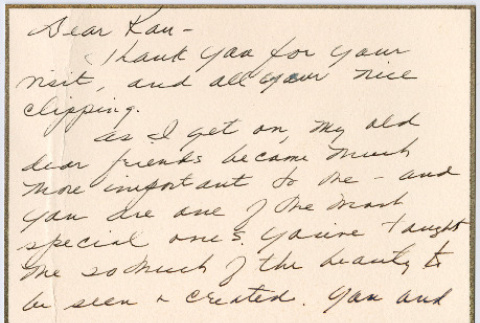 Dear Kan -
Thank you for your
visit, and all your nice
clipping.
As I get on, my old
dear friends become much
more important to me - and
you are one of the most
special one's. You've taught
me so much of the beauty to
be seen & created. You and